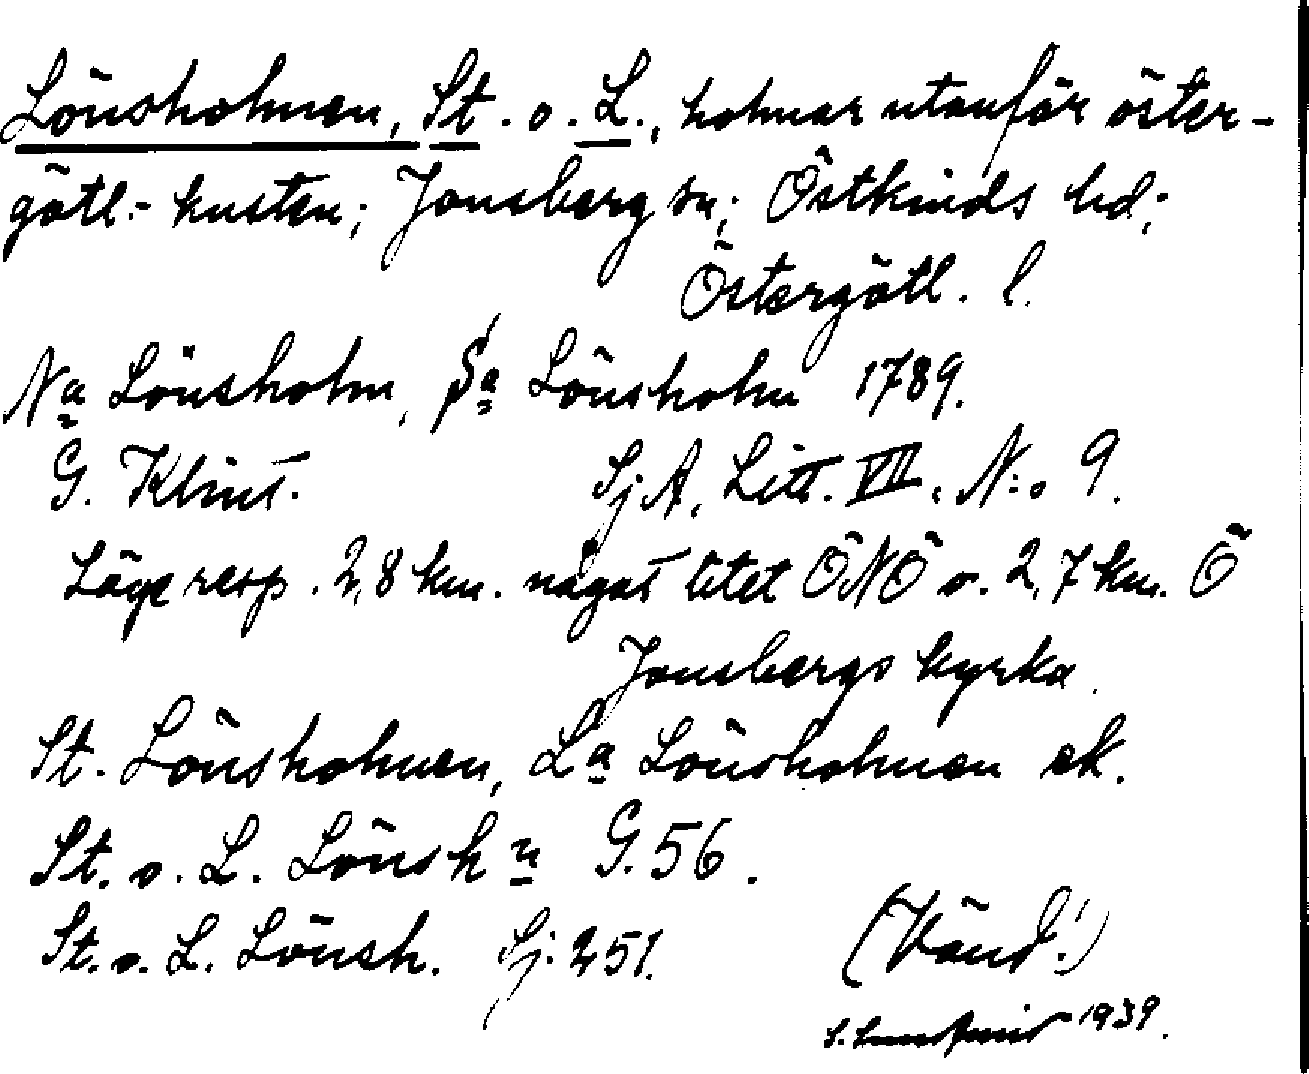 Lönsholmen, St. o. L., holmar utanför öster-
götl.- kusten; Jonsberg sn; Östkinds hd;
Östergötl. l.
Na Lönsholm, Sa Lönsholm 1789.
G. Klint. Sj A, Litt. VII, N:o 9.
Läge resp. 2,8 km. något litet ÖNÖ o. 2,7 km. Ö
Jonsbergs kyrka.
St. Lönsholmen, La Lönsholmen ek.
St. o. L. Lönsh n G. 56.
St. o. L. Lönsh. Sj. 251.
(Vänd!)
1939.